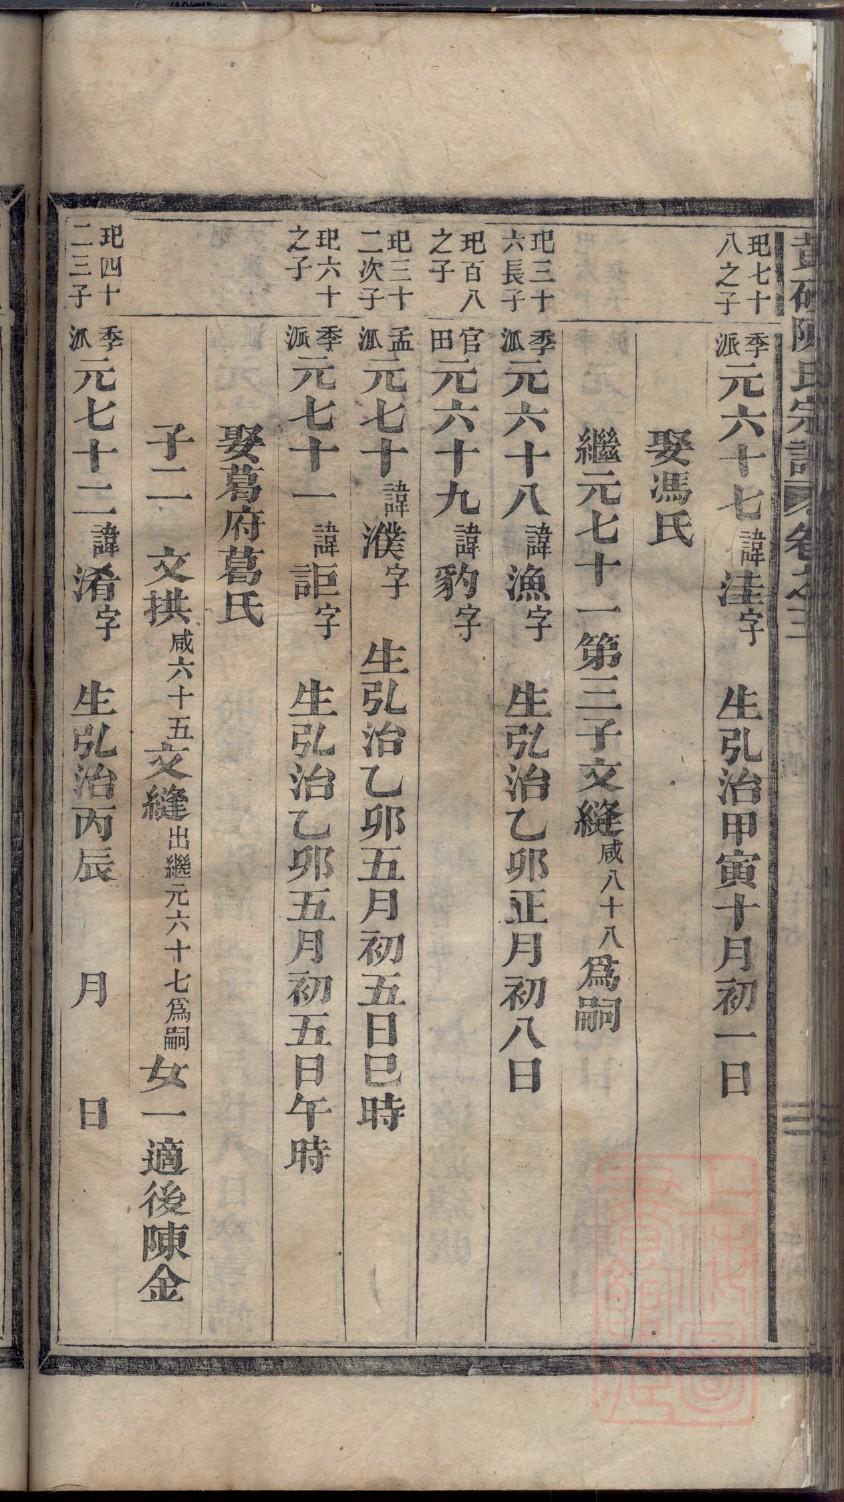 陳氏宗譜 卷之三
玘七十八之子 季派 元六十七 諱溎字 生弘治甲寅十月初一日
娶馮氏
繼元七十一第三子文縫咸八十八為嗣
玘三十六長子 季派 元六十八 諱漁字 生弘治乙卯正月初八日
玘百八之子 官田 元六十九 諱豹字
玘三十二次子 孟派 元七十 諱濮字 生弘治乙卯五月初五日巳時
玘六十之子 季派 元七十一 諱詎字 生弘治乙卯五月初五日午時
娶葛府葛氏
子二 文拱咸六十五 文縫出繼元六十七為嗣 女一適後陳金
玘四十二三子 季派 元七十二 諱淆字 生弘治丙辰 月 日